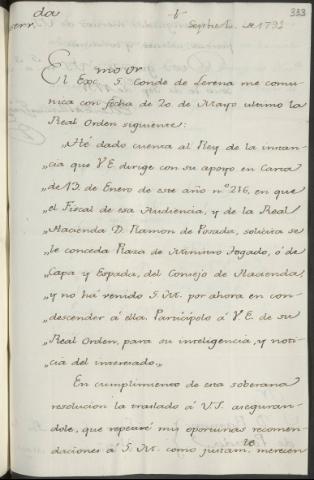 da
-6-
Septre de 1792
333
Exmo. Sor.
El Exc. S. Conde de Lerena me comu-
nica con fecha de 20 de Mayo ultimo la
Real Orden siguiente:
„Hé dado cuenta al Rey de la instan-
„cia que V.E. dirige con su apoyo en Carta
„de 13 de Enero de este año nº 216, en que
„el Fiscal de esa Audiencia, y de la Real
„Hacienda D. Ramon de Posada, solicita se
„le conceda Plaza de Ministro Togado, ó de
„Capa y Espada, del Consejo de Hacienda,
„y no há venido S. M. por ahora en con-
„descender á ella. Participolo á V.E. de su
„Real Orden, para su inteligencia, y noti-
„cia del interesado.„
En cumplimiento de esta soberana
resolucion la traslado á V.S. aseguran-
dole, que repetiré mis oportunas recomen-
daciones á S. M. como justamte. merecen